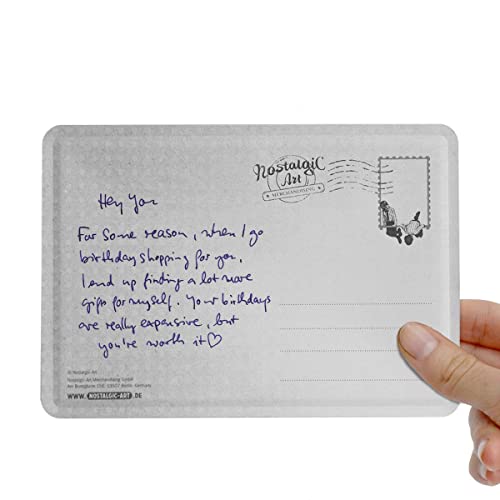 Nostalgic
Art
MERCHANDISING
Hey You
For some reason, when I go
birthday shopping for you,
I end up finding a lot more
gifts for myself. Your birthdays
are really expensive, but
you're worth it♡
© Nostalgic-Art
Nostalgic-Art Merchandising GmbH
Berlin, Germany
WWW.NOSTALGIC-ART.DE